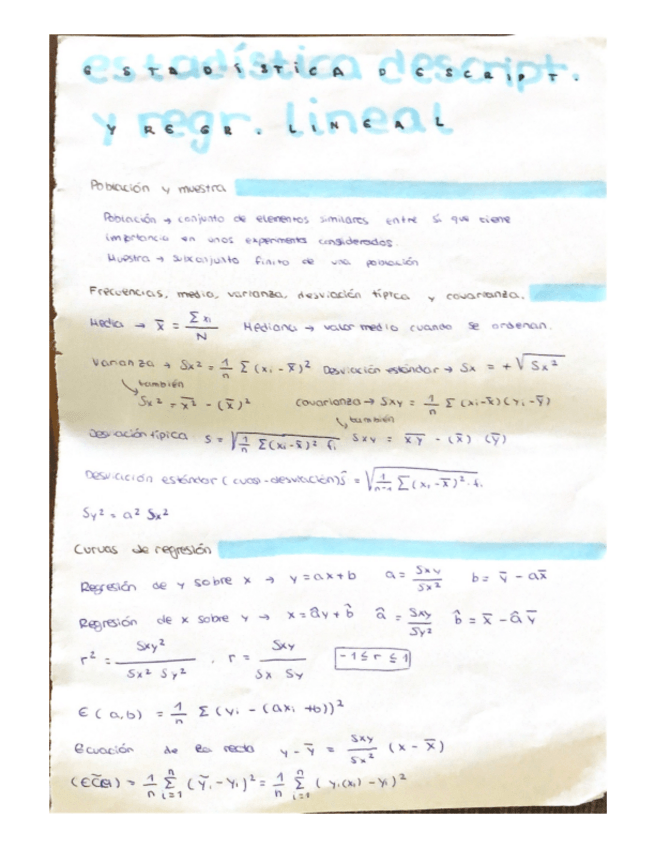 ESTADÍSTICA DESCRIPT.
Y REGR. LINEAL
Población y muestra
Población → conjunto de elementos similares entre sí que tiene
importancia en unos experimentos considerados.
Muestra → subconjunto finito de una población
Frecuencias, media, varianza, desviación típica y covarianza.
Media → x̄ = Σxi / N   Mediana → valor medio cuando se ordenan.
Varianza → Sx² = 1/n Σ(xi - x̄)²   Desviación estándar → Sx = + √Sx²
↘ también
Sx² = x̄² - (x̄)²   covarianza → Sxy = 1/n Σ(xi-x̄)(yi-ȳ)
↘ también
Desviación típica S = √(1/n Σ(xi-x̄)²·fi)   Sxy = x̄ȳ - (x̄) (ȳ)
Desviación estándar (cuasi-desviación) ŝ = √(1/n-1 Σ(xi-x̄)²·fi)
Sy² = a² Sx²
Curvas de regresión
Regresión de y sobre x → y = ax+b   a = Sxy / Sx²   b = ȳ - ax̄
Regresión de x sobre y → x = ây + b̂   â = Sxy / Sy²   b̂ = x̄ - âȳ
r² = Sxy² / Sx² Sy² , r = Sxy / Sx Sy   -1 ≤ r ≤ 1
E(a,b) = 1/n Σ(yi - (axi + b))²
Ecuación de la recta y - ȳ = Sxy / Sx² (x - x̄)
= 1/n Σ i=1 n (ỹi - yi)² = 1/n Σ i=1 n (yi(xi) - yi)²